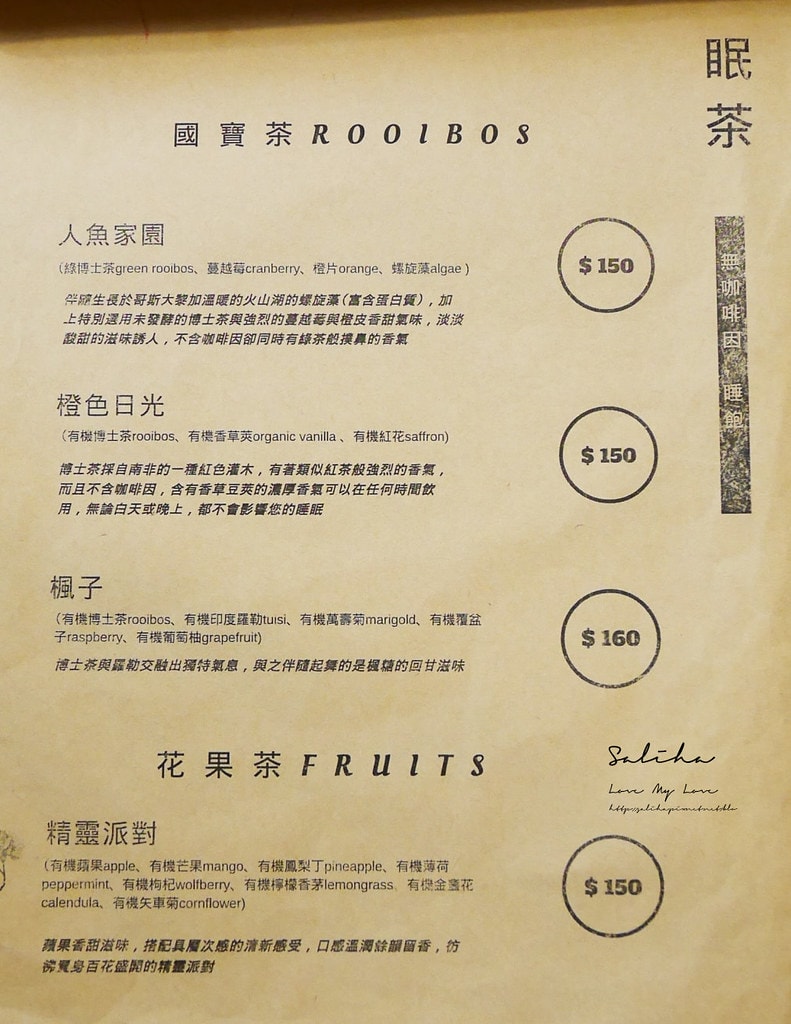 眠茶
無咖啡因 睡飽
國寶茶ROOIBOS
人魚家園
(綠博士茶green rooibos、蔓越莓cranberry、橙片orange、螺旋藻algae )
$ 150
伴隨生長於哥斯大黎加溫暖的火山湖的螺旋藻(富含蛋白質)，加
上特別選用未發酵的博士茶與強烈的蔓越莓與橙皮香甜氣味，淡淡
酸甜的滋味誘人，不含咖啡因卻同時有綠茶般撲鼻的香氣
橙色日光
(有機博士茶rooibos、有機香草莢organic vanilla 、有機紅花saffron)
$ 150
博士茶採自南非的一種紅色灌木，有著類似紅茶般強烈的香氣，
而且不含咖啡因，含有香草豆莢的濃厚香氣可以在任何時間飲
用，無論白天或晚上，都不會影響您的睡眠
楓子
(有機博士茶rooibos、有機印度羅勒tulsi、有機萬壽菊marigold、有機覆盆
子raspberry、有機葡萄柚grapefruit)
$ 160
博士茶與羅勒交融出獨特氣息，與之伴隨起舞的是楓糖的回甘滋味
花果茶FRUITS
Saliha
Love My Love
精靈派對
(有機蘋果apple、有機芒果mango、有機鳳梨丁pineapple、有機薄荷
peppermint、有機枸杞wolfberry、有機檸檬香茅lemongrass、有機金盞花
calendula、有機矢車菊cornflower)
$ 150
蘋果香甜滋味，搭配具層次感的清新感受，口感溫潤餘韻留香，彷
彿置身百花盛開的精靈派對